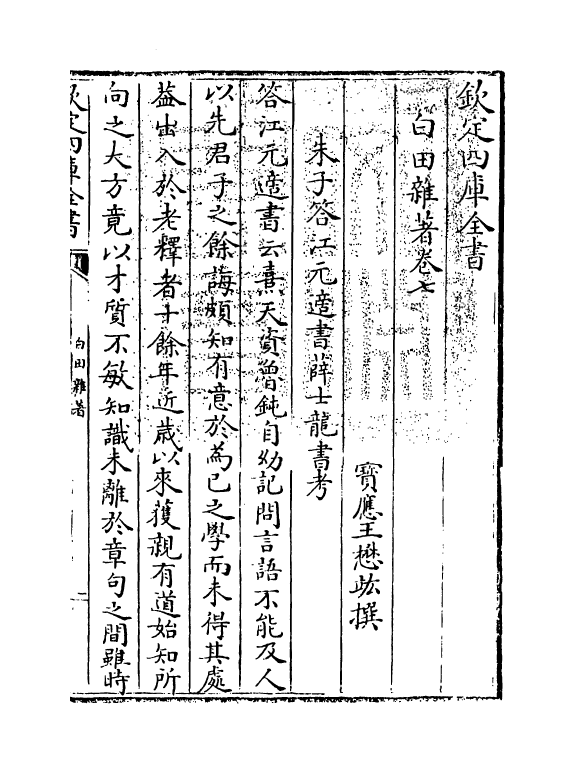 欽定四庫全書
白田雜著卷七
寶應王懋竑撰
朱子答江元適書薛士龍書考
答江元適書云熹天資魯鈍自幼記問言語不能及人
以先君子之餘誨頗知有意於為己之學而未得其處
葢出入於老釋者十餘年近歲以來獲親有道始知所
向之大方竟以才質不敏知識未離於章句之間雖時
欽定四庫全書
白田雜著